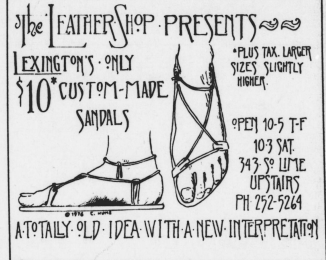 The LEATHER SHOP · PRESENTS
LEXINGTON'S · ONLY
$10* CUSTOM-MADE
SANDALS
*PLUS TAX. LARGER
SIZES SLIGHTLY
HIGHER.
OPEN 10-5 T-F
10-3 SAT.
343 · SO LIME
UPSTAIRS
PH. 252-5264
© 1976 C.
A · TOTALLY · OLD · IDEA · WITH · A · NEW · INTERPRETATION